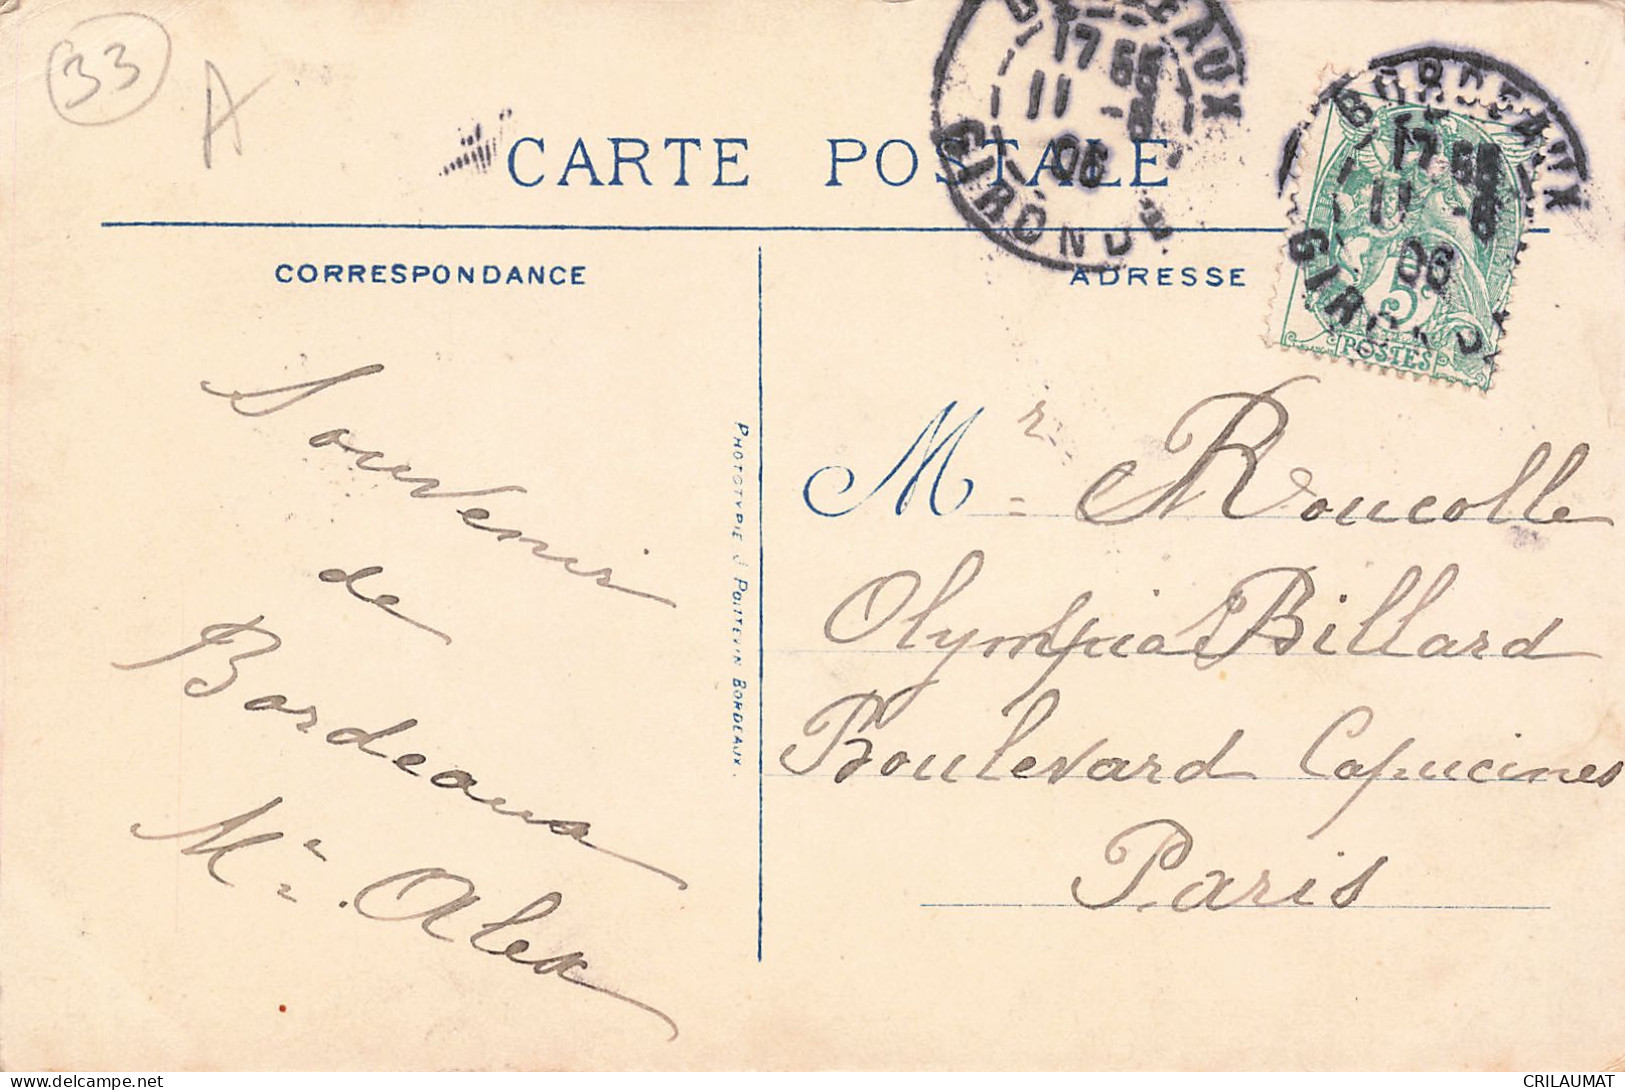 33
A
CARTE POSTALE
BORDEAUX
17 55
11 -8
06
GIRONDE
BORDEAUX
17 55
11 -8
06
GIRONDE
5c
POSTES
CORRESPONDANCE
Souvenir
de
Bordeaux
Mr. Alex
PHOTOTYPIE J. POITTEVIN BORDEAUX.
ADRESSE
Mr Roucolle
Olympia Billard
Boulevard Capucines
Paris
CRILAUMAT